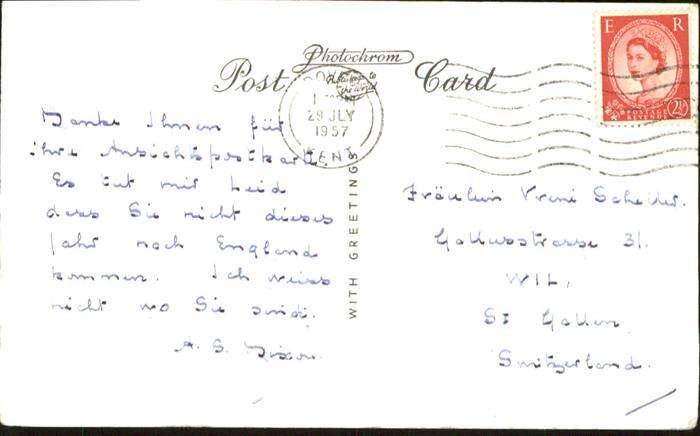 Photochrom
Post Card
29 JLY
1957
KENT
E R
POSTAGE
REVENUE
2½
Danke Ihnen für
ihre Ansichtspostkarte
Es tut mir Leid
dass Sie nicht dieses
Jahr nach England
kommen. Ich weiss
nicht wo Sie sind.
A. S. Dixon.
WITH GREETINGS
Fräulein Vreni
Gallusstrasse 31.
WIL,
St Gallen
Switzerland.